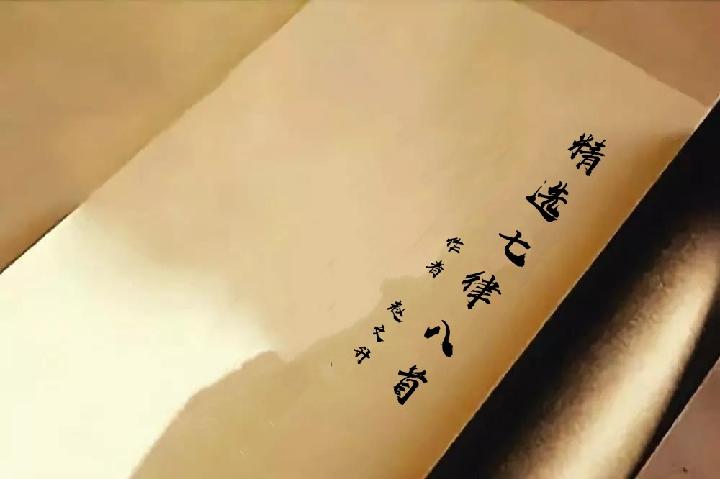 精选七律八首
作者 赵文升